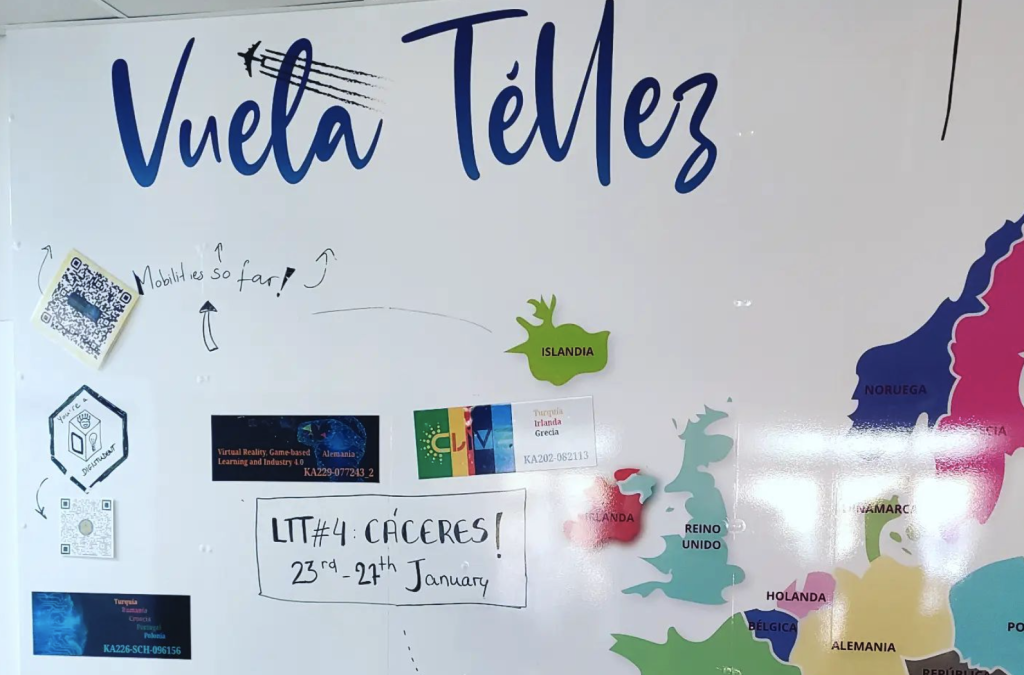 Vuela Téllez
Mobilities so far!
ISLANDIA
NORUEGA
You're a
DIGISTUDENT
Virtual Reality, Game-based
Learning and Industry 4.0
Alemania
KA229-077243_2
Turquía
Irlanda
Grecia
KA202-082113
LTT#4: CÁCERES!
23rd - 27th January
IRLANDA
REINO
UNIDO
DINAMARCA
HOLANDA
BÉLGICA
ALEMANIA
PO
REPÚBLICA
Turquía
Rumania
Grecia
Portugal
Polonia
KA226-SCH-096156